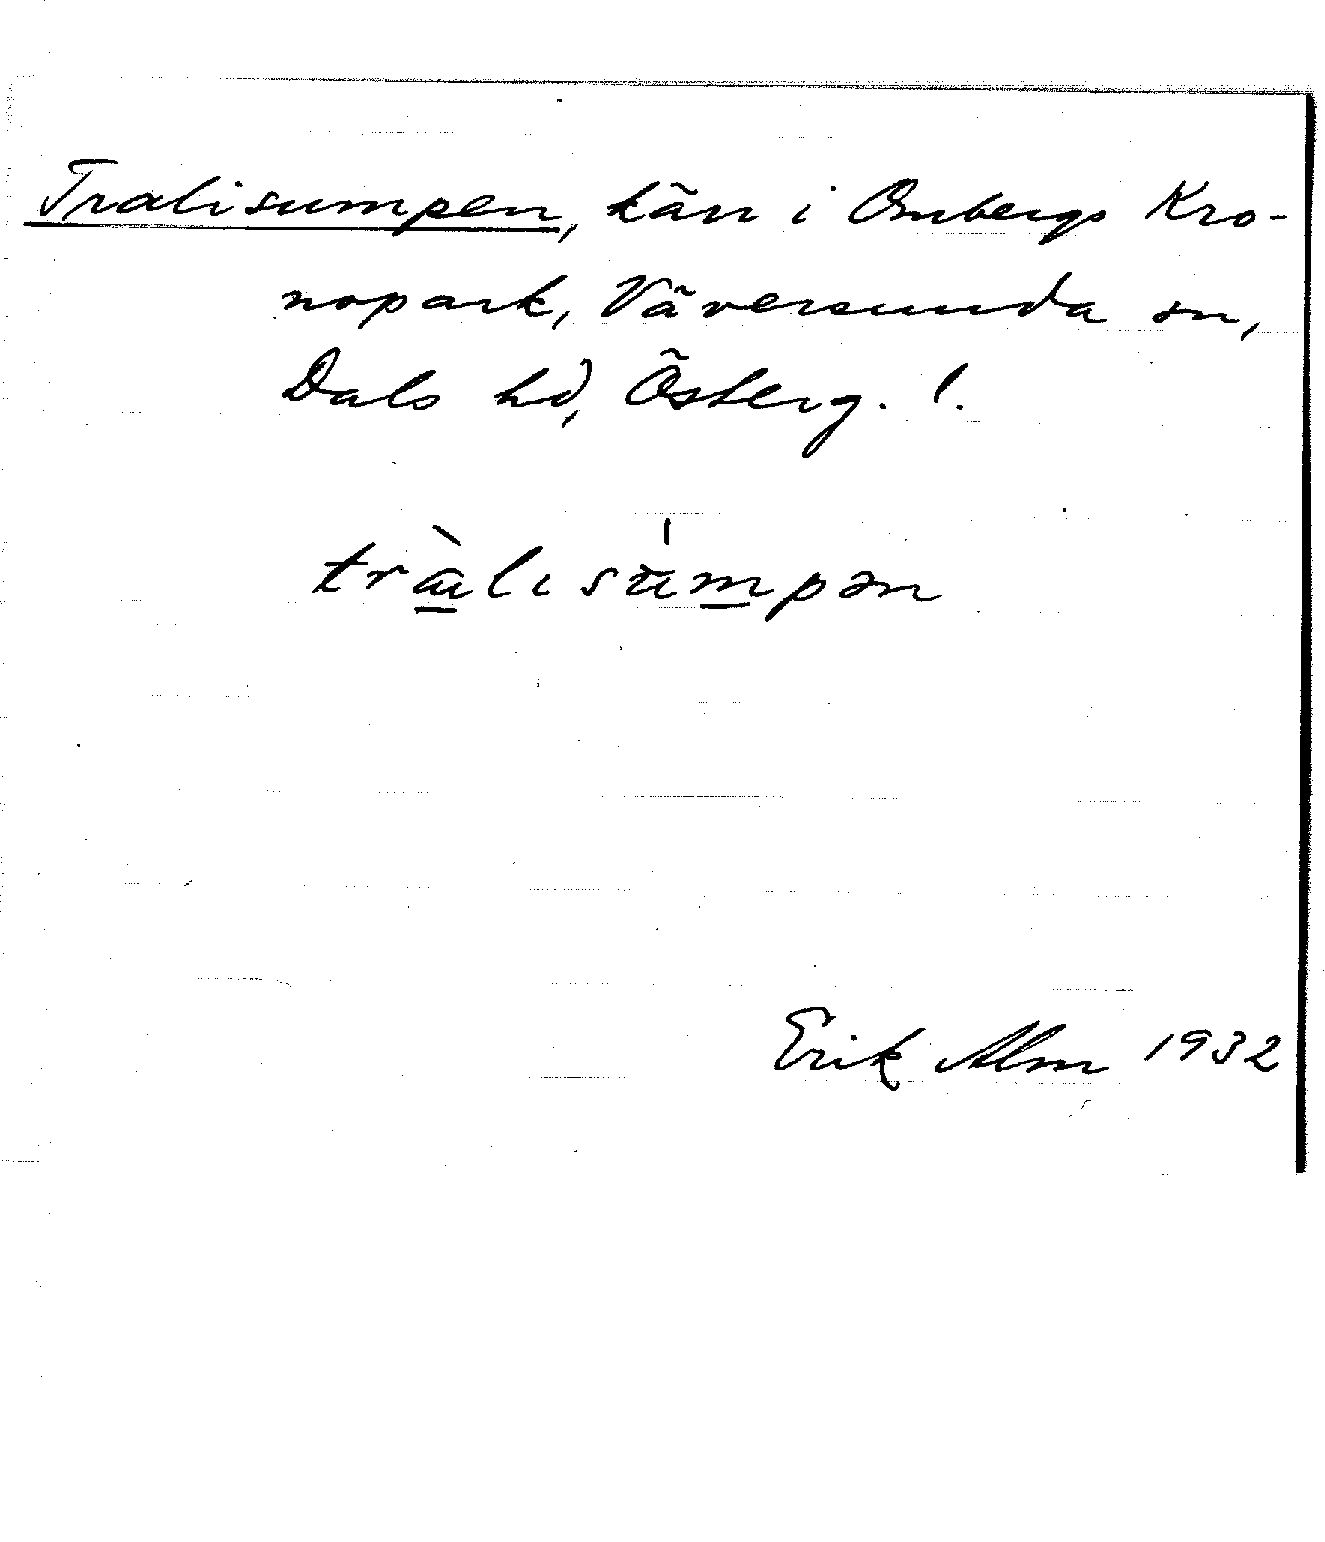 Tralisumpen, kärr i Ombergs Kro-
nopark, Väversunda sn,
Dals hd, Österg. !.
tràlisumpən
Erik Alm 1932